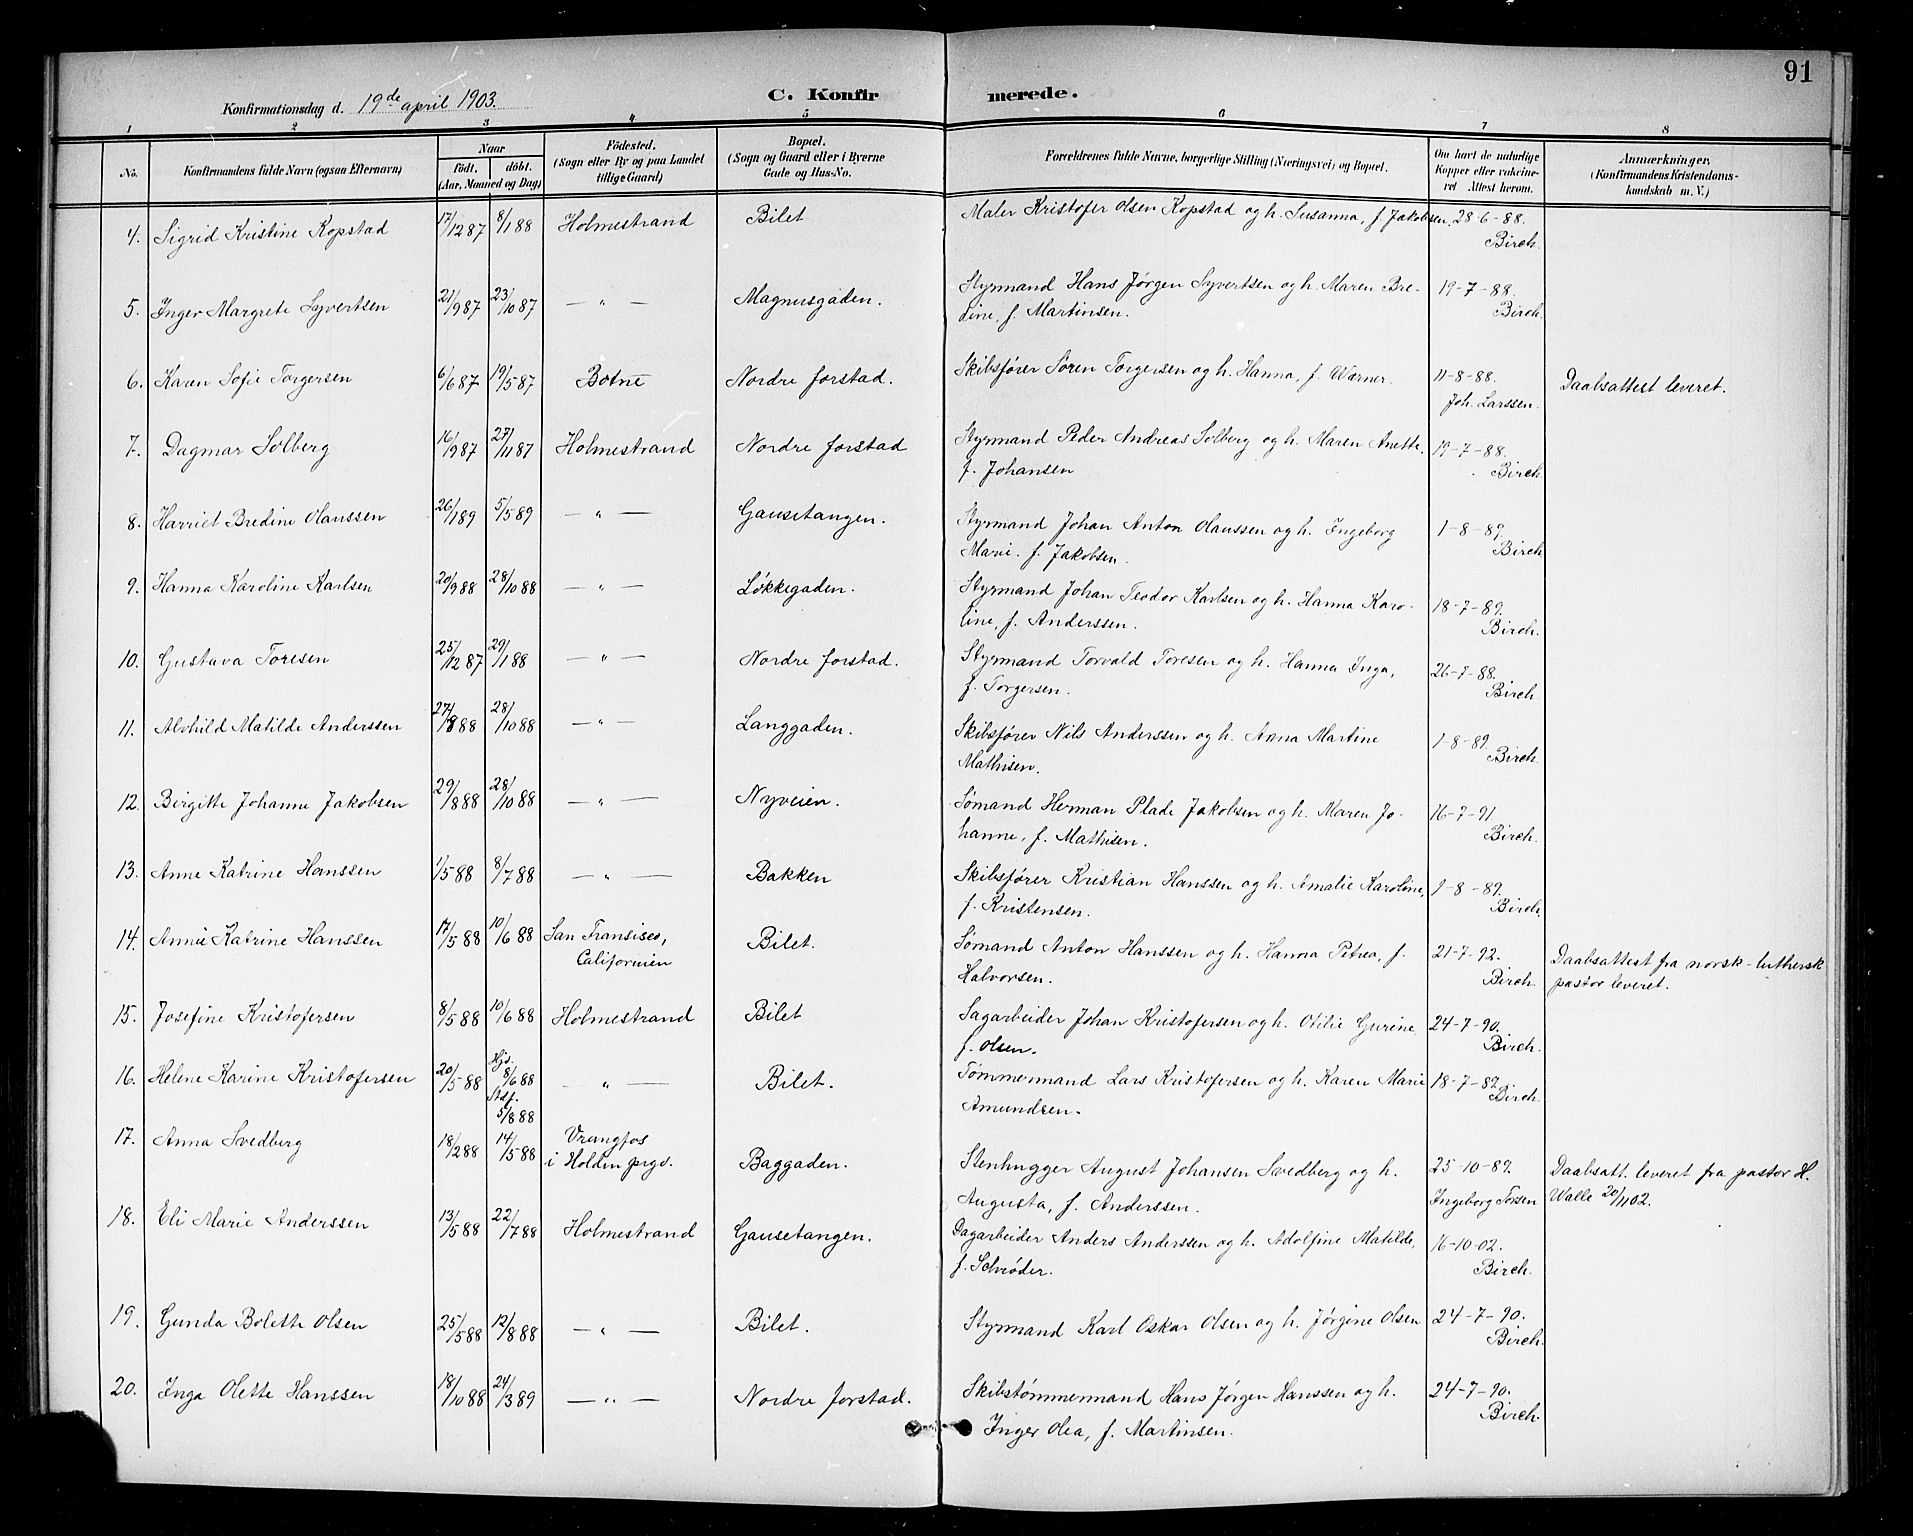 91
Konfirmationsdag d. 19de april 1903.
C. Konfirmerede.
1 2 3 4 5 6 7 8
No.
Konfirmandens fulde Navn (ogsaa Efternavn)
Naar
født. døbt.
(Aar, Maaned og Dag)
Fødested.
(Sogn eller By og paa Landet
tillige Gaard)
Bopæl.
(Sogn og Gaard eller i Byerne
Gade og Hus-No.
Forældrenes fulde Navne, borgerlige Stilling (Næringsvei) og Bopæl.
Om havt de naturlige
Kopper eller vakcine-
ret Attest herom.
Anmærkninger.
(Konfirmandens Kristendoms-
kundskab m. V.)
4. Sigrid Kristine Kopstad 17/12 87 8/1 88 Holmestrand Bilet Maler Kristofer Olsen Kopstad og h. Susanna, f. Jakobsen. 28-6-88.
Birch.
5. Inger Margrete Syvertsen 21/9 87 23/10 87 — " — Magnusgaden. Styrmand Hans Jørgen Syvertsen og h. Maren Bre- 19-7-88.
dine, f. Martinsen. Birch.
6. Karen Sofie Torgersen 6/6 87 19/5 87 Botne Nordre forstad. Skibsfører Søren Torgersen og h. Hanna, f. Warner. 11-8-88. Daabsattest leveret.
Joh. Larssen.
7. Dagmar Solberg 16/9 87 27/11 87 Holmestrand Nordre forstad Styrmand Peder Andreas Solberg og h. Maren Anette. 19-7-88.
f. Johansen Birch
8. Harriet Bredine Olaussen 26/1 89 5/5 89 — " — Gausetangen. Styrmand Johan Anton Olaussen og h. Ingeborg 1-8-89.
Marie. f. Jakobsen. Birch
9. Hanna Karoline Karlsen 20/9 88 28/10 88 — " — Løkkegaden. Styrmand Johan Teodor Karlsen og h. Hanna Karo- 18-7-89.
line, f. Anderssen. Birch.
10. Gustava Toresen 25/12 87 29/1 88 — " — Nordre forstad. Styrmand Torvald Toresen og h. Hanna Inga, 26-7-88.
f. Torgersen. Birch.
11. Alvhild Matilde Anderssen 27/8 88 28/10 88 — " — Langgaden. Skibsfører Nils Anderssen og h. Anna Martine 1-8-89.
Mathisen. Birch.
12. Birgitte Johanne Jakobsen 29/8 88 28/10 88 — " — Nyveien. Sømand Herman Plade Jakobsen og h. Maren Jo- 16-7-91.
hanne, f. Mathisen. Birch.
13. Anne Katrine Hanssen 1/5 88 8/7 88 — " — Bakken Skibsfører Kristian Hanssen og h. Amalie Karoline, 1-8-89.
f. Kristensen. Birch.
14. Annie Katrine Hanssen 17/5 88 10/6 88 San Fransisco, Bilet. Sømand Anton Hanssen og h. Hanna Petrea, f. 21-7-92. Daabsattest fra norsk-luthersk
Californien Halvorsen. Birch. pastor leveret.
15. Josefine Kristofersen 8/5 88 10/6 88 Holmestrand Bilet Sagarbeider Johan Kristofersen og h. Otilie Gurine 24-7-90.
f. Olsen. Birch.
16. Helene Karine Kristofersen 20/5 88 Hjd. 8/6 88 — " — Bilet. Tømmermand Lars Kristofersen og h. Karen Marie 18-7-89.
Stdf. 5/8 88 Amundsen. Birch.
17. Anna Svedberg 18/2 88 14/5 88 Vrangfos Baggaden. Stenhugger August Johansen Svedberg og h. 25-10-89. Daabsatt. leveret fra pastor H.
i Holden prgd. Augusta, f. Anderssen. Ingeborg Torsen Walle 20/11 02.
18. Eli Marie Anderssen 13/5 88 22/7 88 Holmestrand Gausetangen. Dagarbeider Anders Anderssen og h. Adolfine Matilde, 16-10-02.
f. Schrøder. Birch.
19. Gunda Bolette Olsen 25/5 88 12/8 88 — " — Bilet. Styrmand Karl Oskar Olsen og h. Jørgine Olsen 24-7-90.
Birch.
20. Inga Olette Hanssen 18/10 88 24/3 89 — " — Nordre forstad. Skibstømmermand Hans Jørgen Hanssen og h. 24-7-90.
Inger Olea, f. Martinsen. Birch.